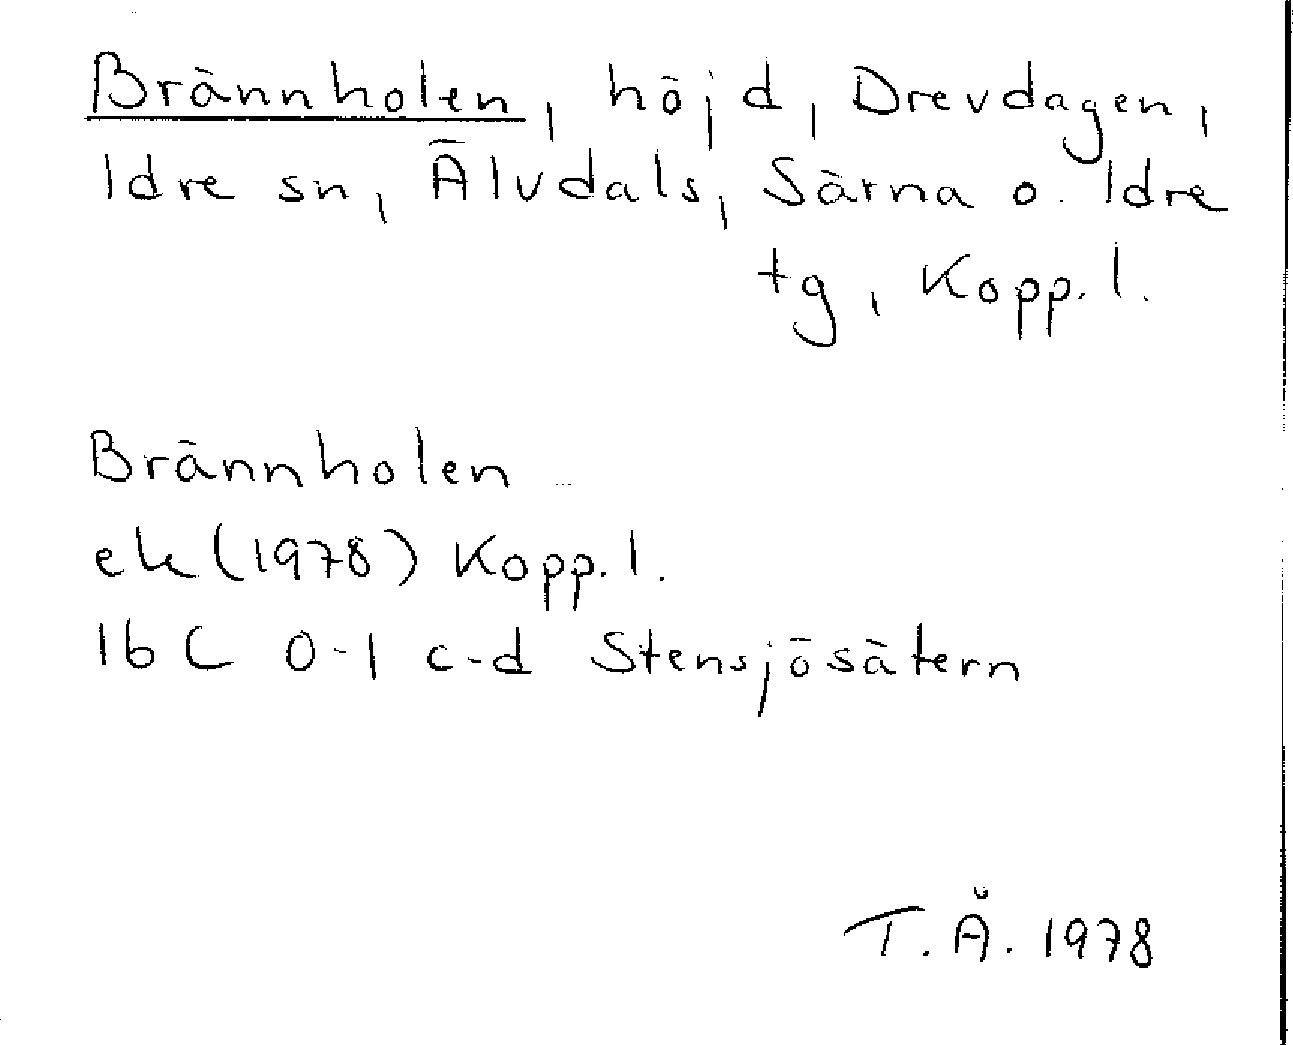 Brännholen, höjd, Drevdagen,
Idre sn, Älvdals, Särna o. Idre
tg, Kopp. l.
Brännholen
ek (1978) Kopp. l.
16 C 0-1 c-d Stensjösätern
T. Å. 1978